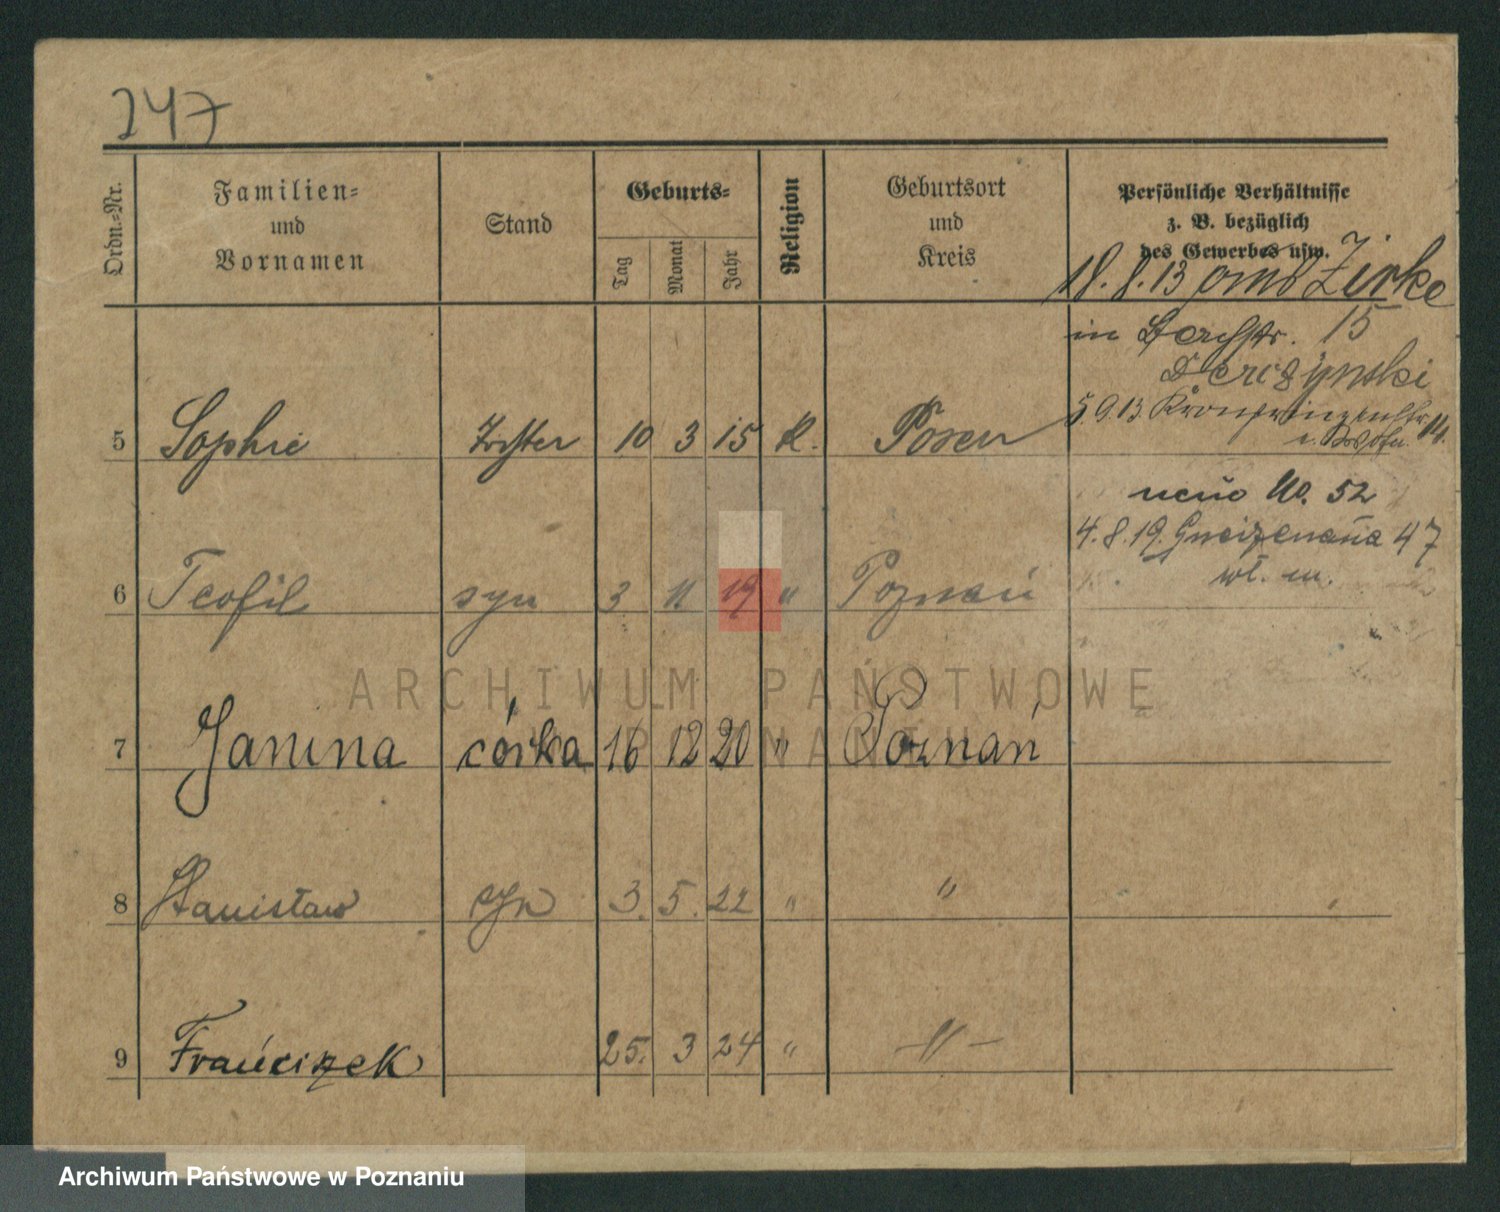 247
Ordn.-Nr.
Familien-
und
Vornamen
Stand
Geburts-
Tag
Monat
Jahr
Religion
Geburtsort
und
Kreis
Persönliche Verhältnisse
z. B. bezüglich
des Gewerbes usw.
18.8.13 Zirke
in 15
5.9.13 Kronprinzenstr. 14.
5 Sophie 10 3 15 K. Posen
No. 52
4.8.19. 47
wł. m.
6 Teofil syn 3 11 19 " Poznań
7 Janina córka 16 12 20 " Poznań
8 Stanisław syn 3. 5. 22 " "
9 Franciszek 25. 3 24 " -"-
ARCHIWUM PAŃSTWOWE
W POZNANIU
Archiwum Państwowe w Poznaniu